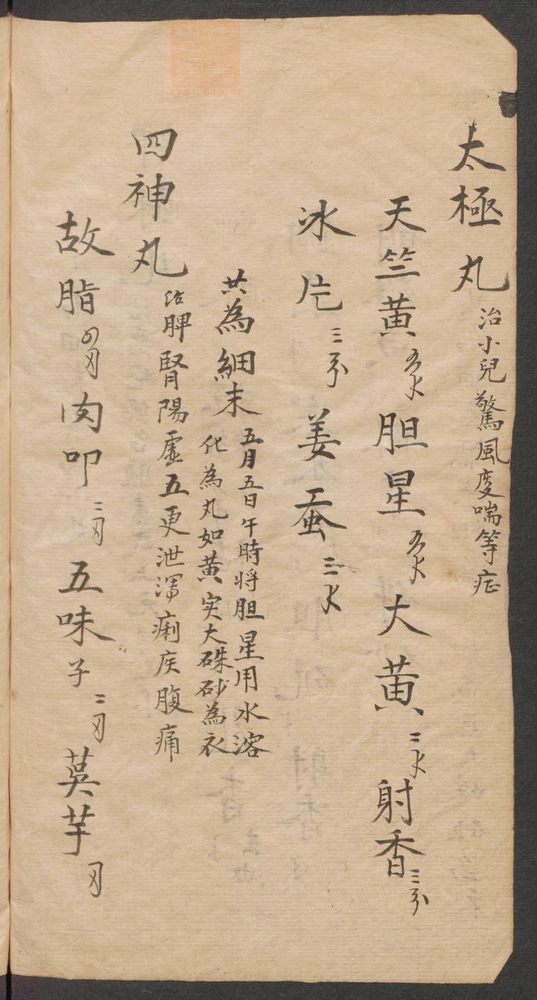 太極丸 治小兒驚風痰喘等症
天竺黃 五水 胆星 五水 大黃 二水 射香 三分
冰片 三分 姜蚕 三水
共為細末 五月五日午時將胆星用水溶
化為丸如黃实大硃砂為衣
四神丸 治脾腎陽虛五更泄瀉痢疾腹痛
故脂 四刃 肉叩 二刃 五味子 二刃 萸芋 刃